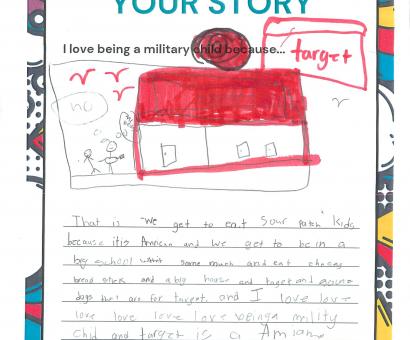 YOUR STORY
I love being a military child because...
target
no
That is we get to eat Sour patch Kids
because it is and we get to be in a
big school some much and eat chesey
bread stick and a big house and target and
dogs that are for target. and I love love
love love love love being a mility
child and target is a